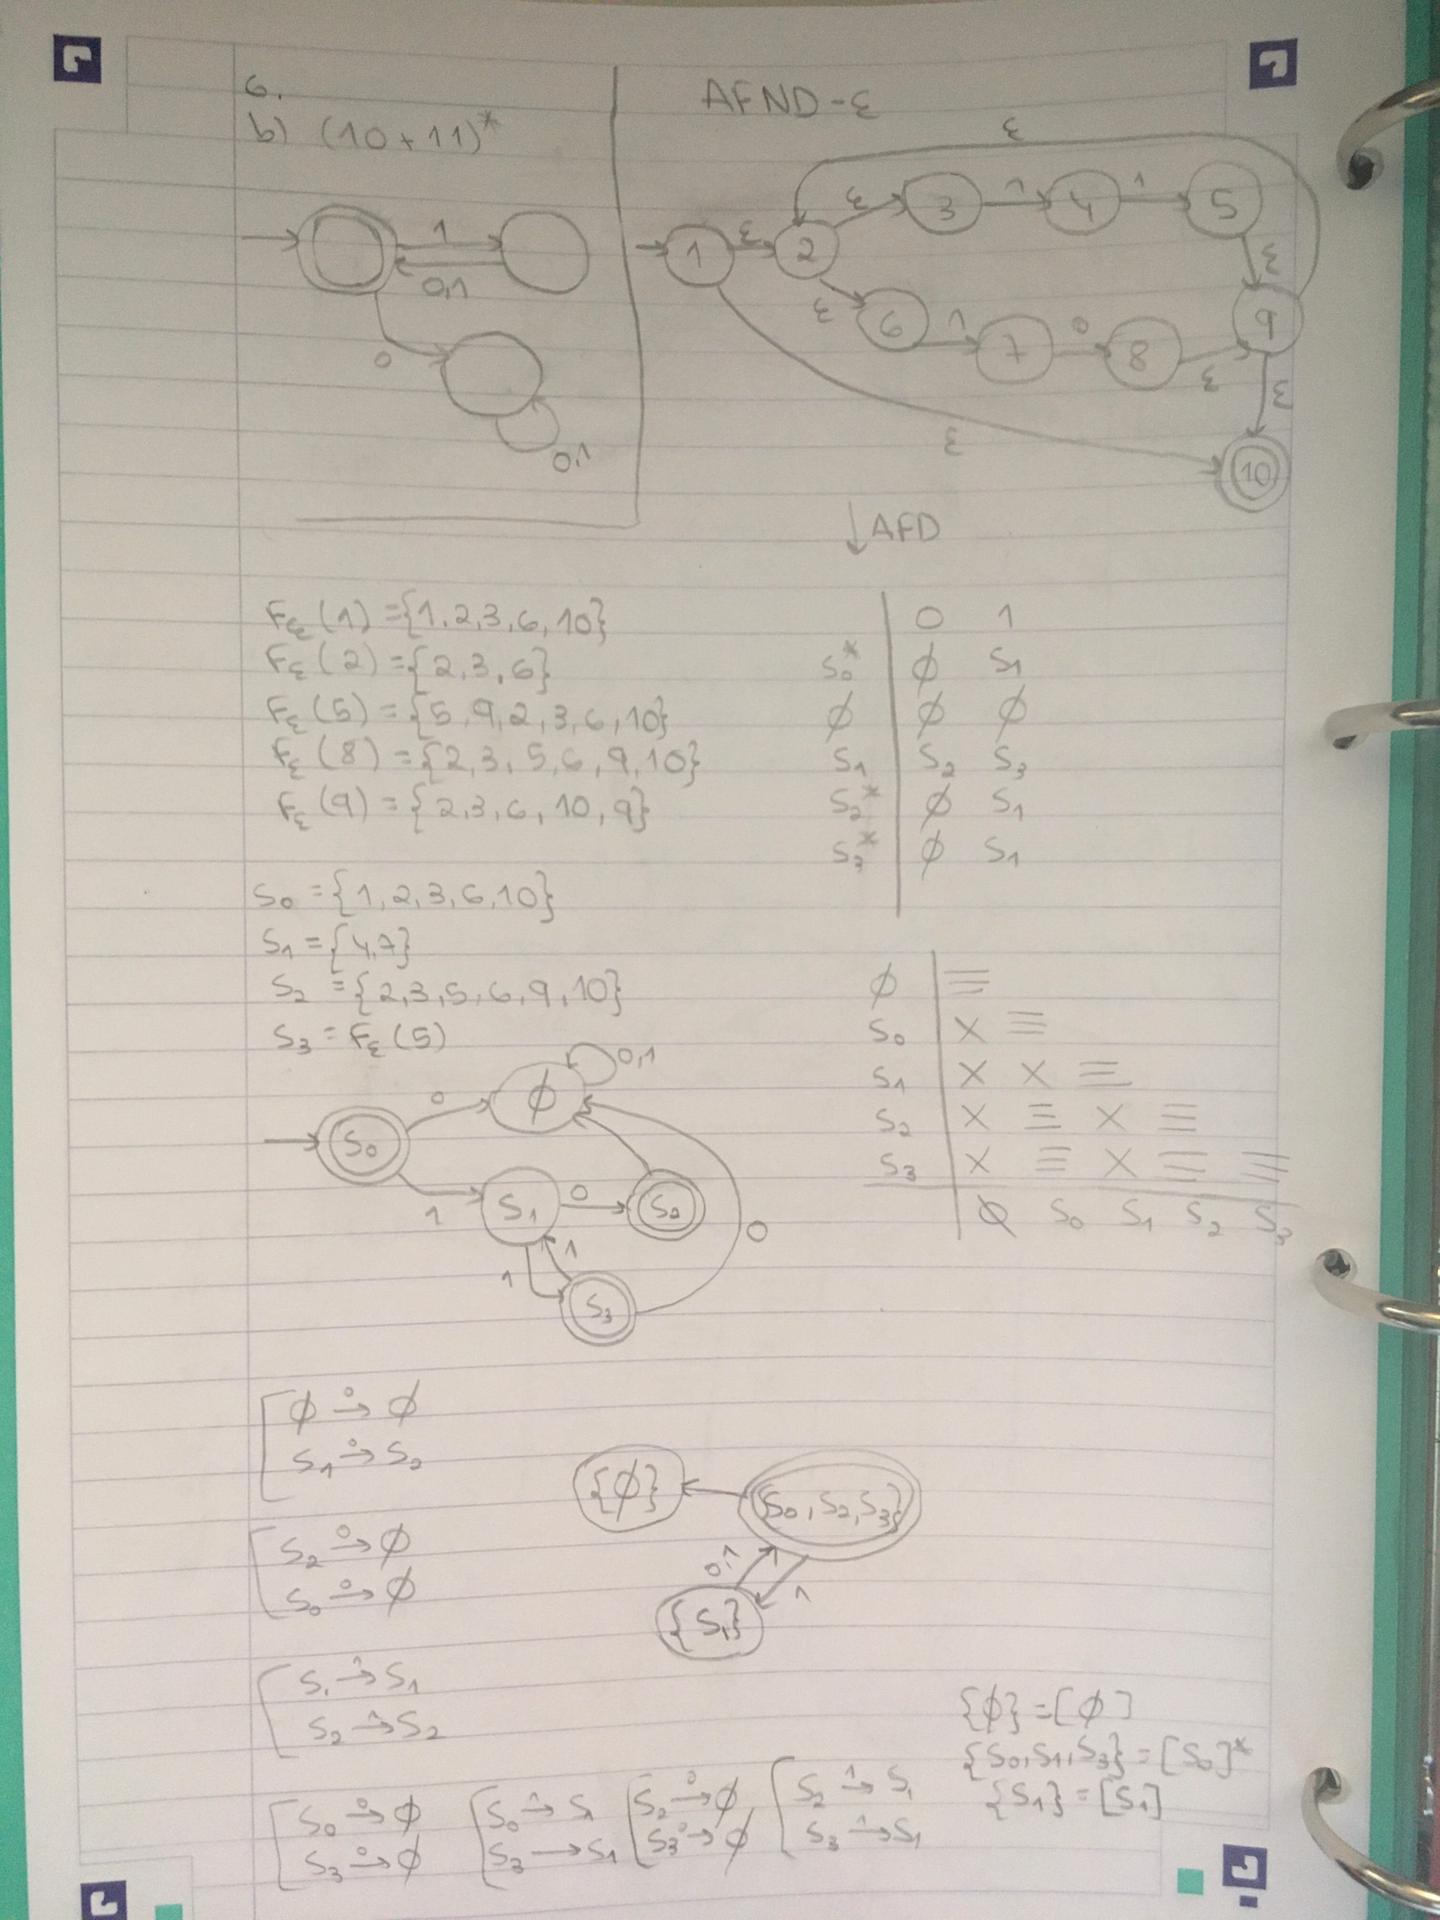 6.
b) (10+11)*
1
0,1
0
0,1
AFND-ε
ε
1 ε 2 ε 3 1 4 1 5
ε 6 1 7 0 8 ε 9
ε
ε
ε
10
↓ AFD
Fε(1) = {1,2,3,6,10}
Fε(2) = {2,3,6}
Fε(5) = {5,9,2,3,6,10}
Fε(8) = {2,3,5,6,9,10}
Fε(9) = {2,3,6,10,9}
0 1
S0* ∅ S1
∅ ∅ ∅
S1 S2 S3
S2* ∅ S1
S3* ∅ S1
S0 = {1,2,3,6,10}
S1 = {4,7}
S2 = {2,3,5,6,9,10}
S3 = Fε(5)
∅ ≡
S0 X ≡
S1 X X ≡
S2 X ≡ X ≡
S3 X ≡ X ≡ ≡
∅ S0 S1 S2 S3
0,1
0 ∅
S0
1 S1 0 S2
0
1 1
S3
∅ 0→ ∅
S1 0→ S2
S2 0→ ∅
S0 0→ ∅
{∅} {S0, S2, S3}
0,1 1
{S1}
S1 1→ S1
S2 1→ S2
{∅} = [∅]
{S0, S1, S3} = [S0]*
{S1} = [S1]
S0 0→ ∅ S0 1→ S1 S2 0→ ∅ S2 1→ S1
S3 0→ ∅ S3 → S1 S3 0→ ∅ S3 1→ S1